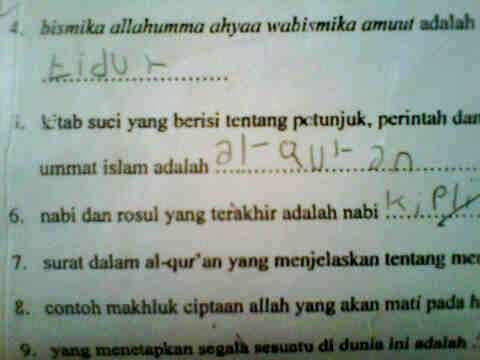 4. bismika allahumma ahyaa wabismika amuut adalah
tidur
kitab suci yang berisi tentang petunjuk, perintah dan
ummat islam adalah al-qur-an
6. nabi dan rosul yang terakhir adalah nabi
7. surat dalam al-qur'an yang menjelaskan tentang
8. contoh makhluk ciptaan allah yang akan mati pada
9. yang menetapkan segala sesuatu di dunia ini adalah